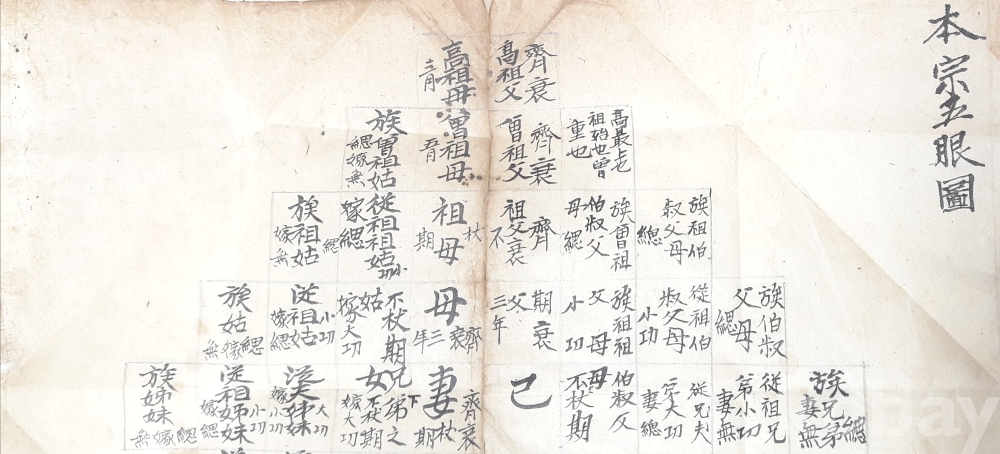 本宗五眼圖
齊衰
高祖父
高祖母
三月
高最上老
祖始也曾
重也
齊衰
曾祖父
曾祖母
五月
族曾祖姑
緦嫁無
族祖伯
叔父母
緦
族曾祖
伯叔父
母緦
齊
祖父衰
不
杖
祖母
期
從祖祖姑小功
嫁緦
族祖姑
緦
嫁無
族伯叔
父母
緦
從祖伯
叔父母
小功
族祖祖
父母
小功
期衰
父
三年
齊
母衰
三年
不杖期
姑
嫁大功
從祖姑
小功
嫁緦
族姑
緦
嫁
無
族兄弟緦
妻無
從祖兄
弟小功
妻無
從兄夫
弟大功
妻緦
伯叔父
母
不杖期
己
齊衰
妻杖期
兄弟之
下
女不杖期
嫁大功
大功
小功
從祖姊妹
小功
嫁緦
族姊妹
緦
嫁
無